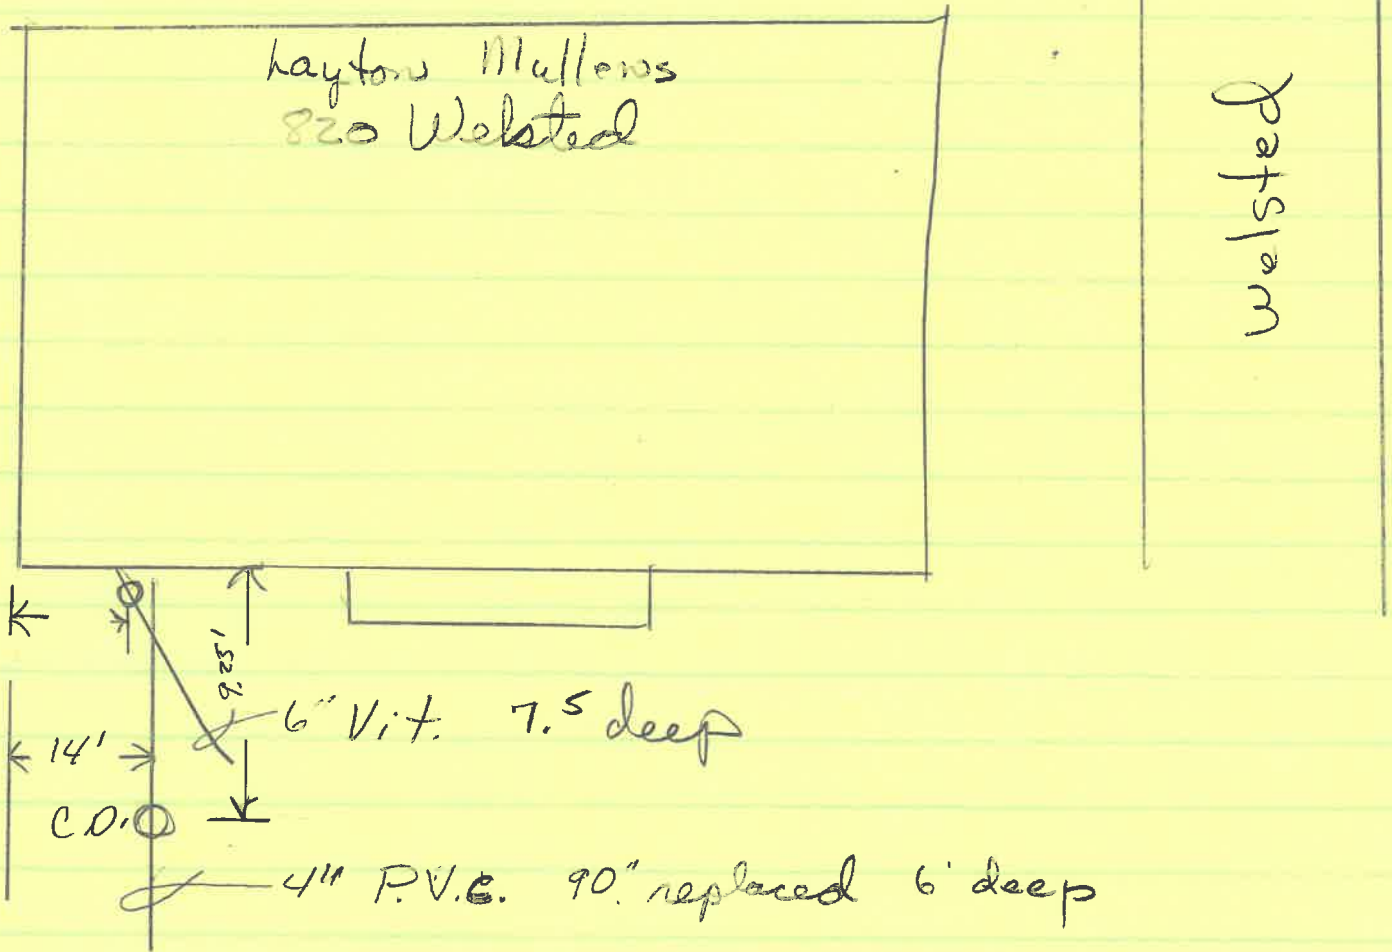 Layton Mullens
820 Welsted
welsted
9.25'
6" Vit. 7.5 deep
14'
C.O.
4" P.V.C. 90." replaced 6' deep